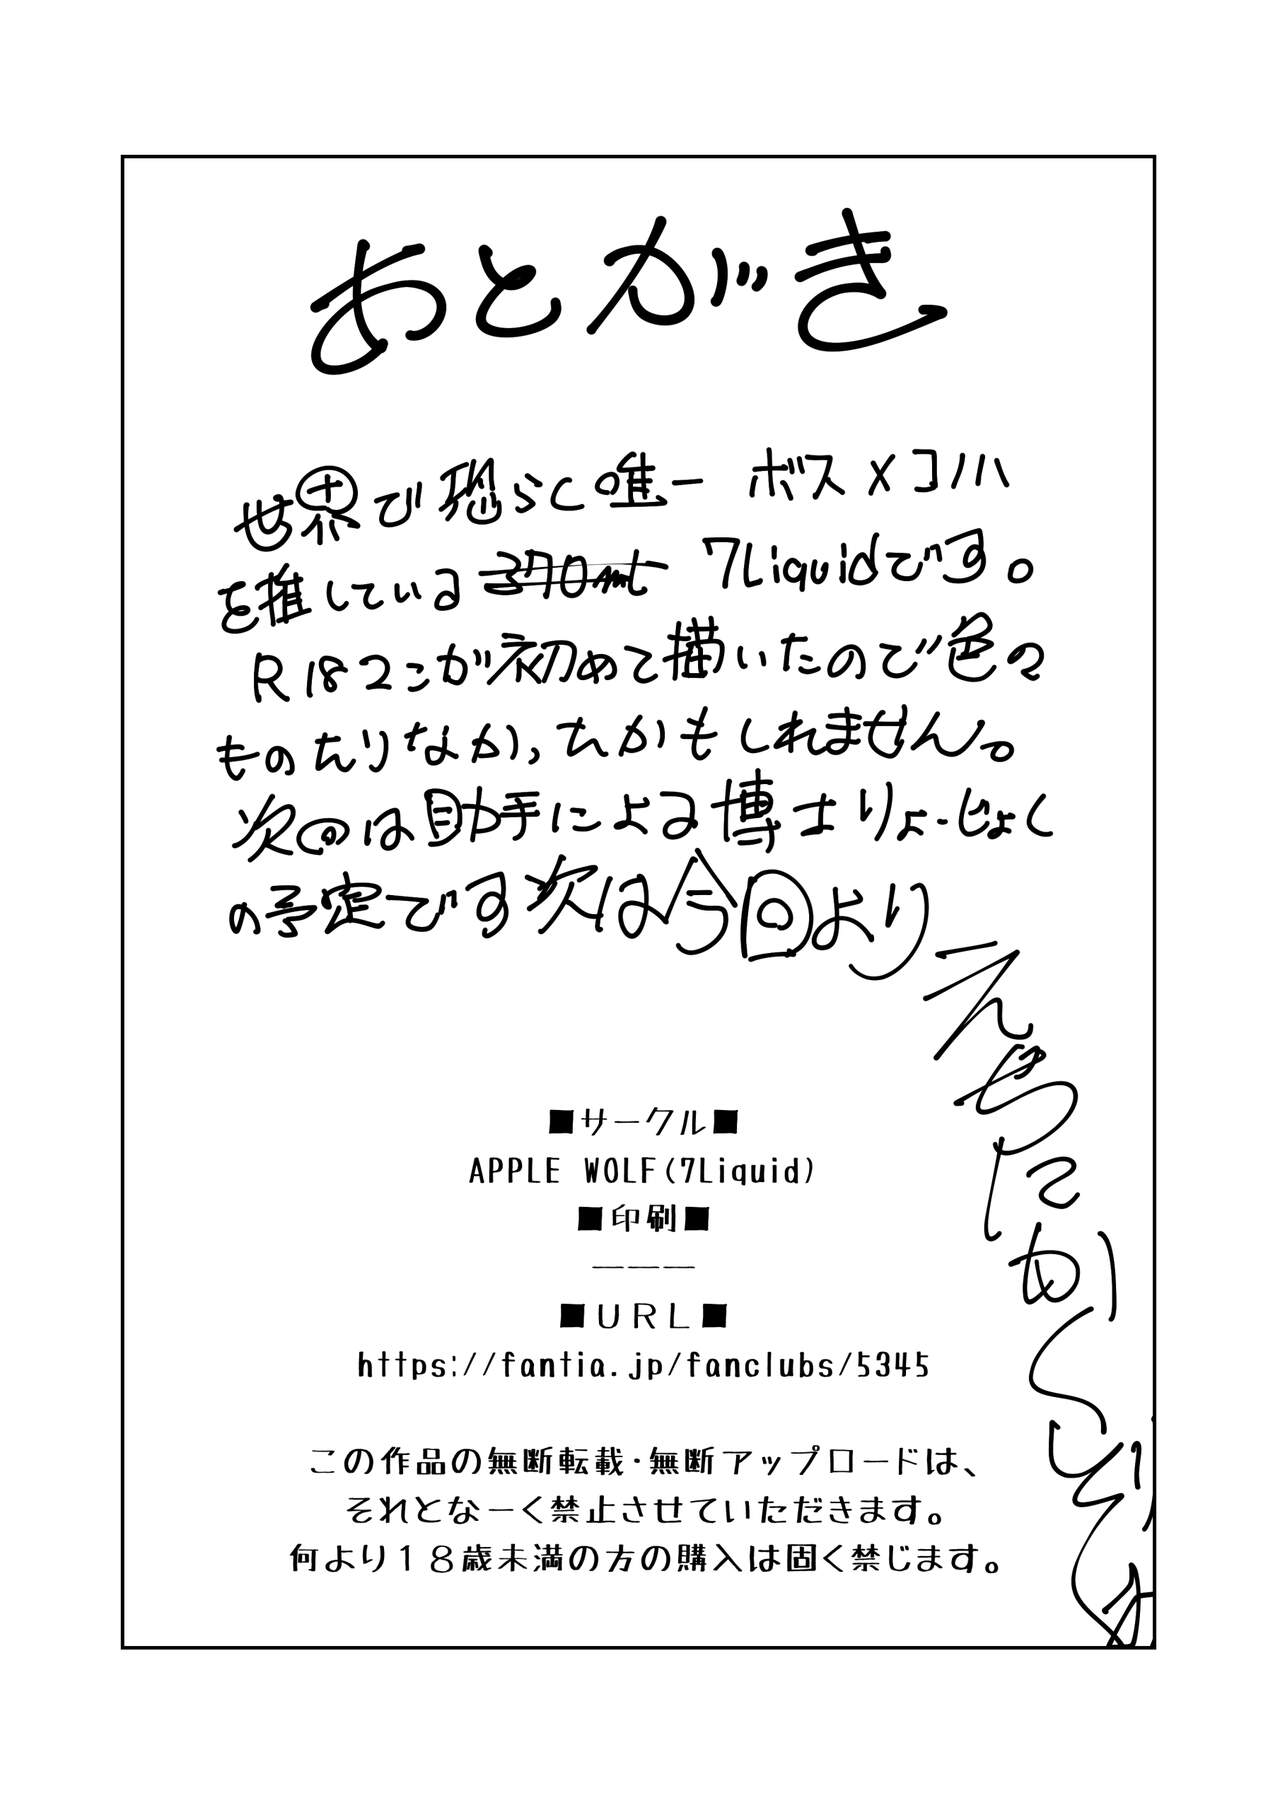 あとがき
世界で恐らく唯一 ボス×コノハ
を推している 370ml 7Liquidです。
R18マンコが初めて描いたので色々
ものたりなかったかもしれません。
次のは助手による博士りょーじょく
の予定です次は今回より
えちちにかく
■サークル■
APPLE WOLF(7Liquid)
■印刷■
———
■URL■
https://fantia.jp/fanclubs/5345
この作品の無断転載・無断アップロードは、
それとなーく禁止させていただきます。
何より１８歳未満の方の購入は固く禁じます。